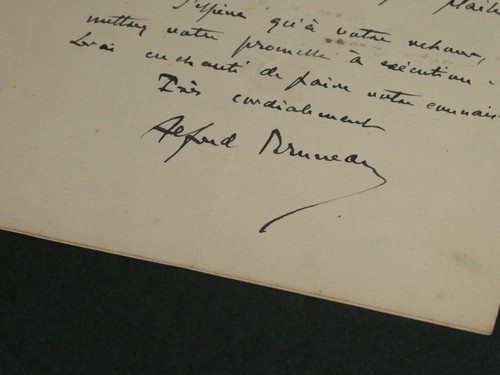 J'espère qu'à votre retour,
mettrez votre promesse à exécution.
Serai enchanté de faire votre connais
Très cordialement
Alfred Bruneau